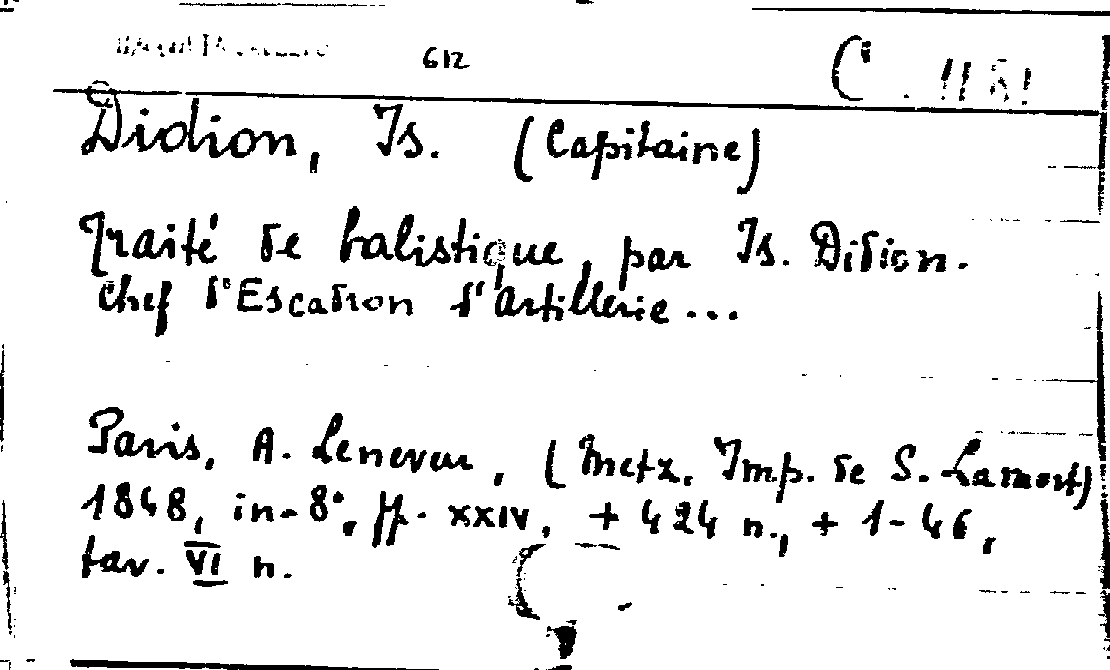 612
C. 1181
Didion, Is. (Capitaine)
Traité de balistique, par Is. Didion.
Chef d'Escadron d'Artillerie...
Paris, A. Leneveu, (Metz. Imp. de S. Lamort)
1848, in-8°, ff. XXIV, + 424 n., + 1-46,
tav. VI n.